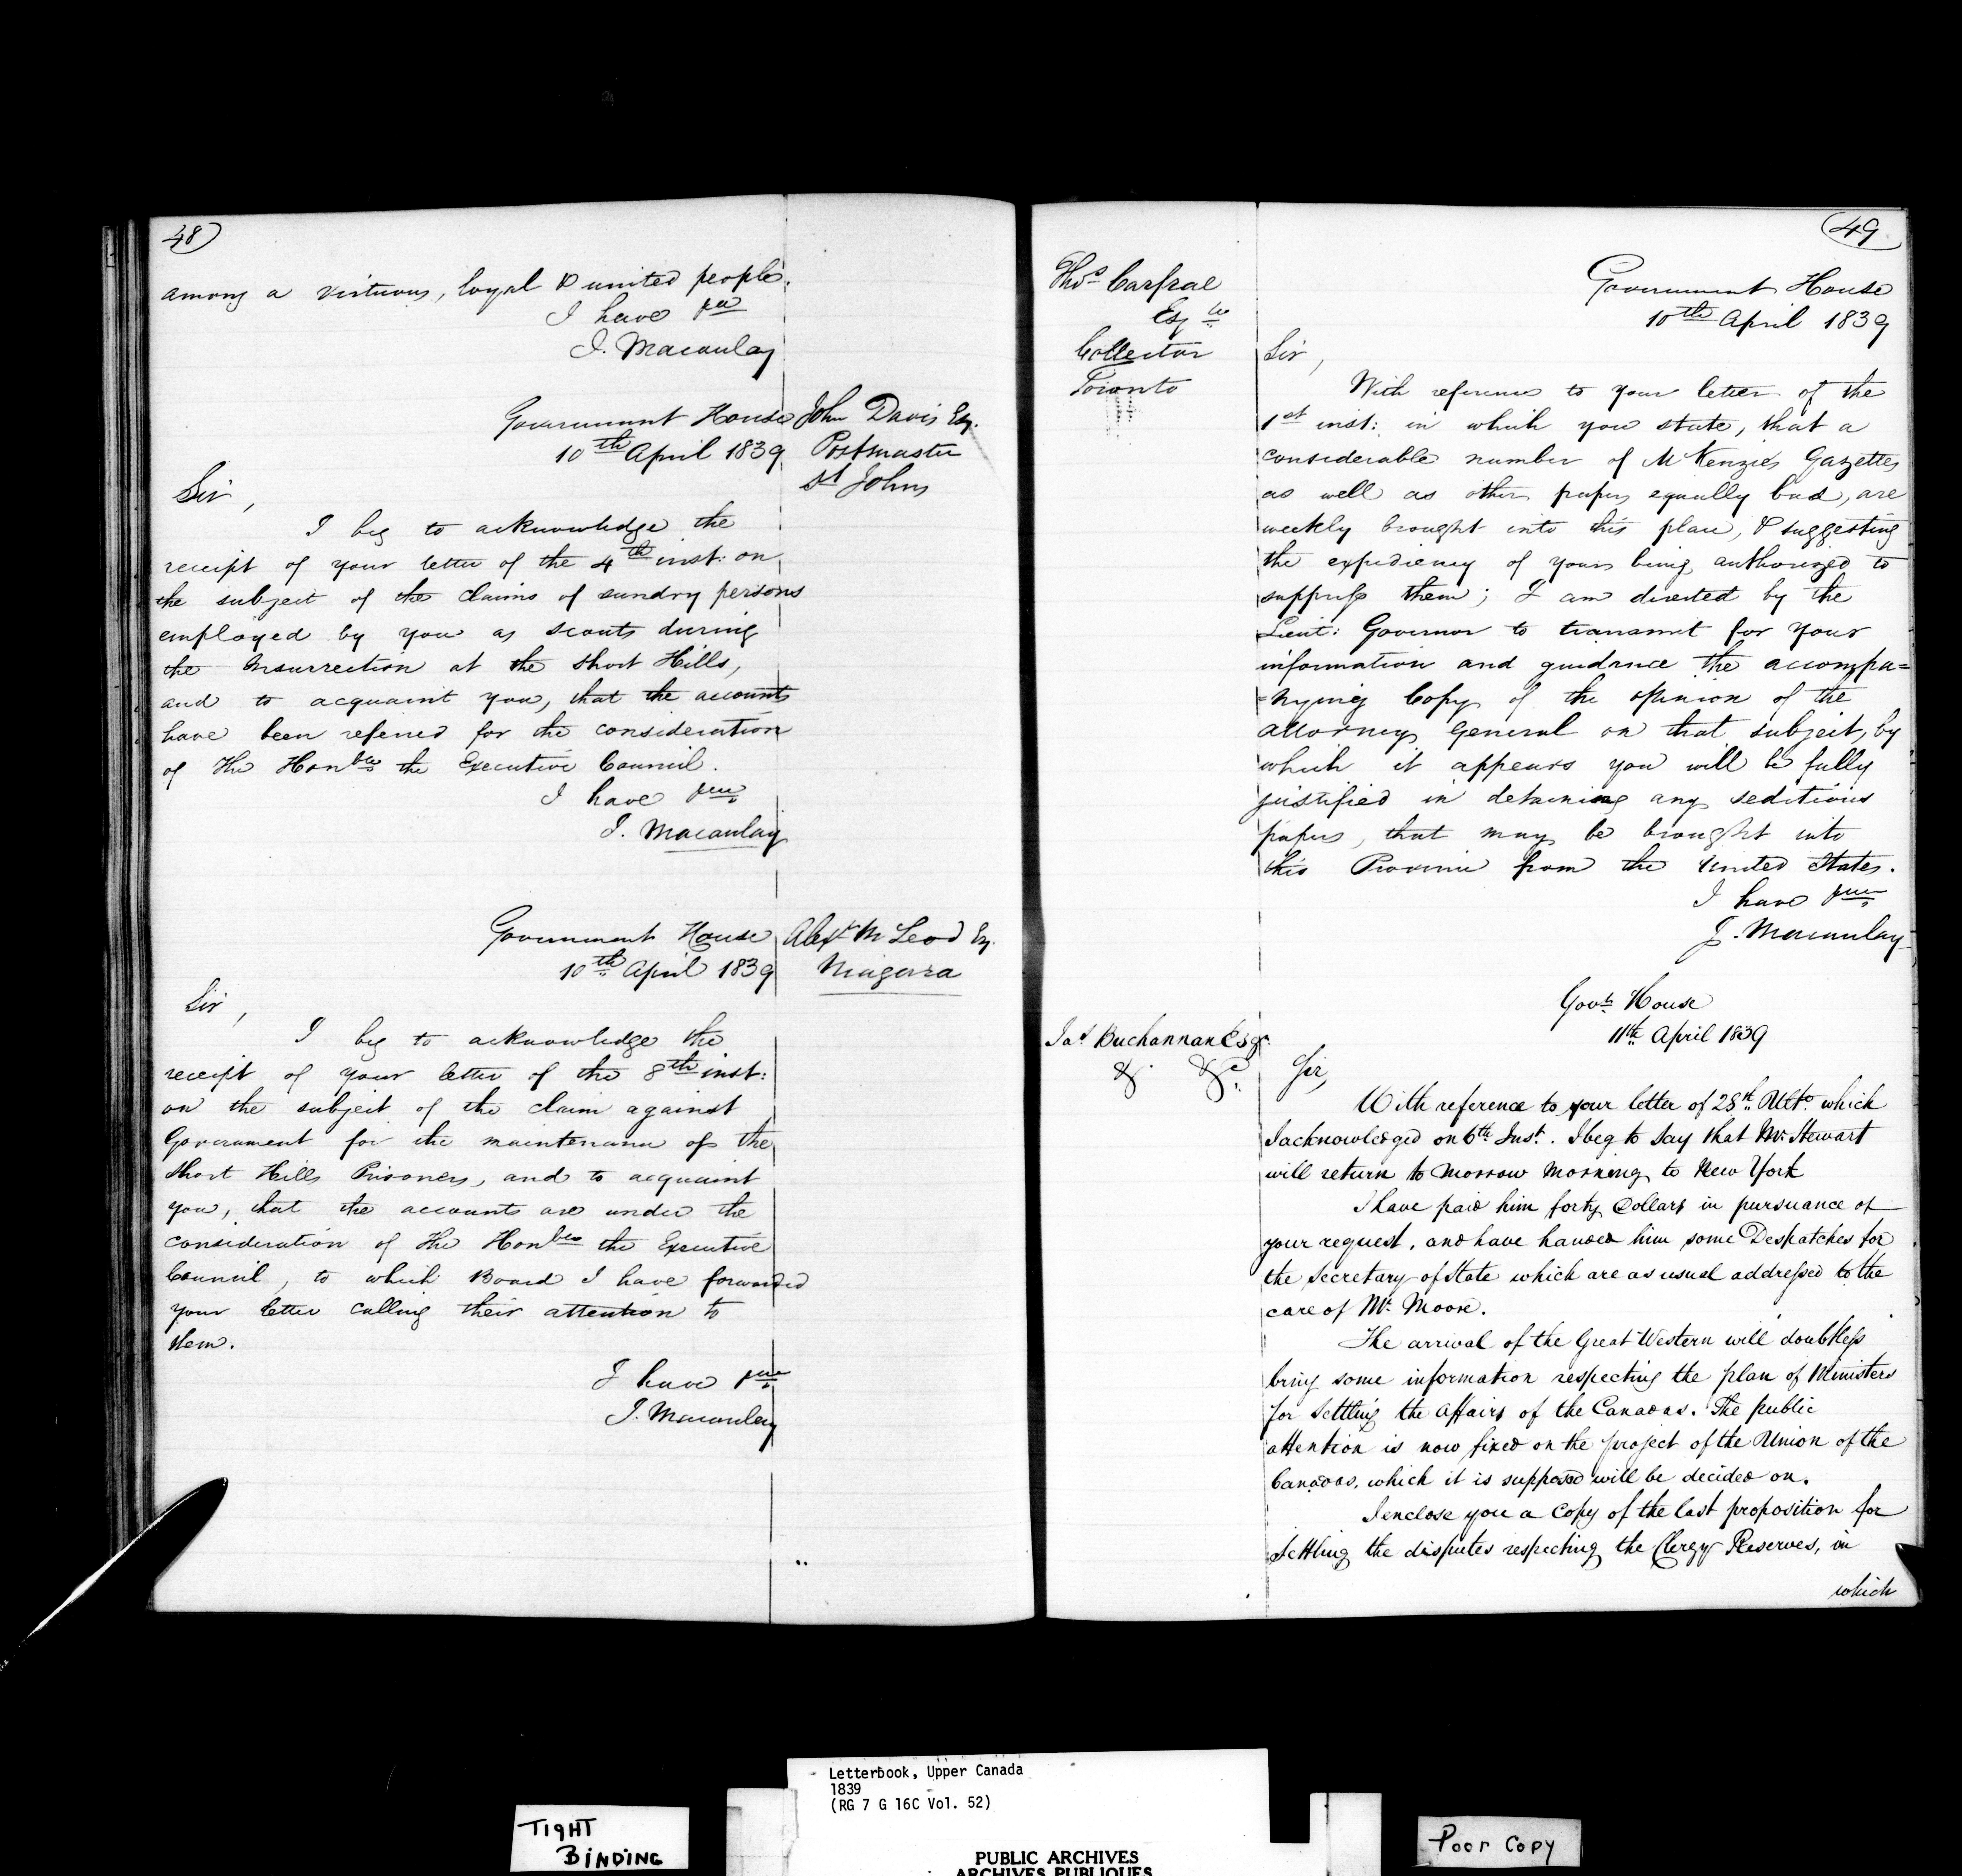 48
among a virtuous, loyal & united people.
I have &c
J. Macaulay
Government House
10th April 1839
John Davis Esq.
Postmaster
St Johns
Sir,
I beg to acknowledge the
receipt of your letter of the 4th inst: on
the subject of the claims of sundry persons
employed by you as scouts during
the Insurrection at the Short Hills,
and to acquaint you, that the accounts
have been referred for the consideration
of The Honble the Executive Council.
I have &c
J. Macaulay
Government House
10th April 1839
Alexr McLeod Esq.
Niagara
Sir,
I beg to acknowledge the
receipt of your letter of the 8th inst:
on the subject of the claim against
Government for the maintenance of the
Short Hills Prisoners, and to acquaint
you, that the accounts are under the
consideration of The Honble the Executive
Council, to which Board I have forwarded
your letter calling their attention to
them.
I have &c
J. Macaulay
49
Thos Carfrae
Esqre
Collector
Toronto
Government House
10th April 1839
Sir,
With reference to your letter of the
1st inst: in which you state, that a
considerable number of McKenzie's Gazettes
as well as other papers equally bad, are
weekly brought into this place, & suggesting
the expediency of your being authorized to
suppress them; I am directed by the
Lieut: Governor to transmit for your
information and guidance the accompa=
=nying Copy of the opinion of the
Attorney General on that subject, by
which it appears you will be fully
justified in detaining any seditious
papers, that may be brought into
this Province from the United States.
I have &c
J. Macaulay
Govt House
11th April 1839
Jas Buchannan Esqr.
& &c.
Sir,
With reference to your letter of 28th Ulto. which
I acknowledged on 6th Inst. I beg to say that Mr Stewart
will return to morrow morning to New York
I have paid him forty Dollars in pursuance of
your request, and have handed him some Despatches for
the Secretary of State which are as usual addressed to the
care of Mr Moore.
The arrival of the Great Western will doubtless
bring some information respecting the plan of Ministers
for settling the affairs of the Canadas. The public
attention is now fixed on the project of the Union of the
Canadas, which it is supposed will be decided on.
I enclose you a Copy of the last proposition for
settling the disputes respecting the Clergy Reserves, in
which
Letterbook, Upper Canada
1839
(RG 7 G 16C Vol. 52)
TIGHT
BINDING
PUBLIC ARCHIVES
ARCHIVES PUBLIQUES
Poor Copy